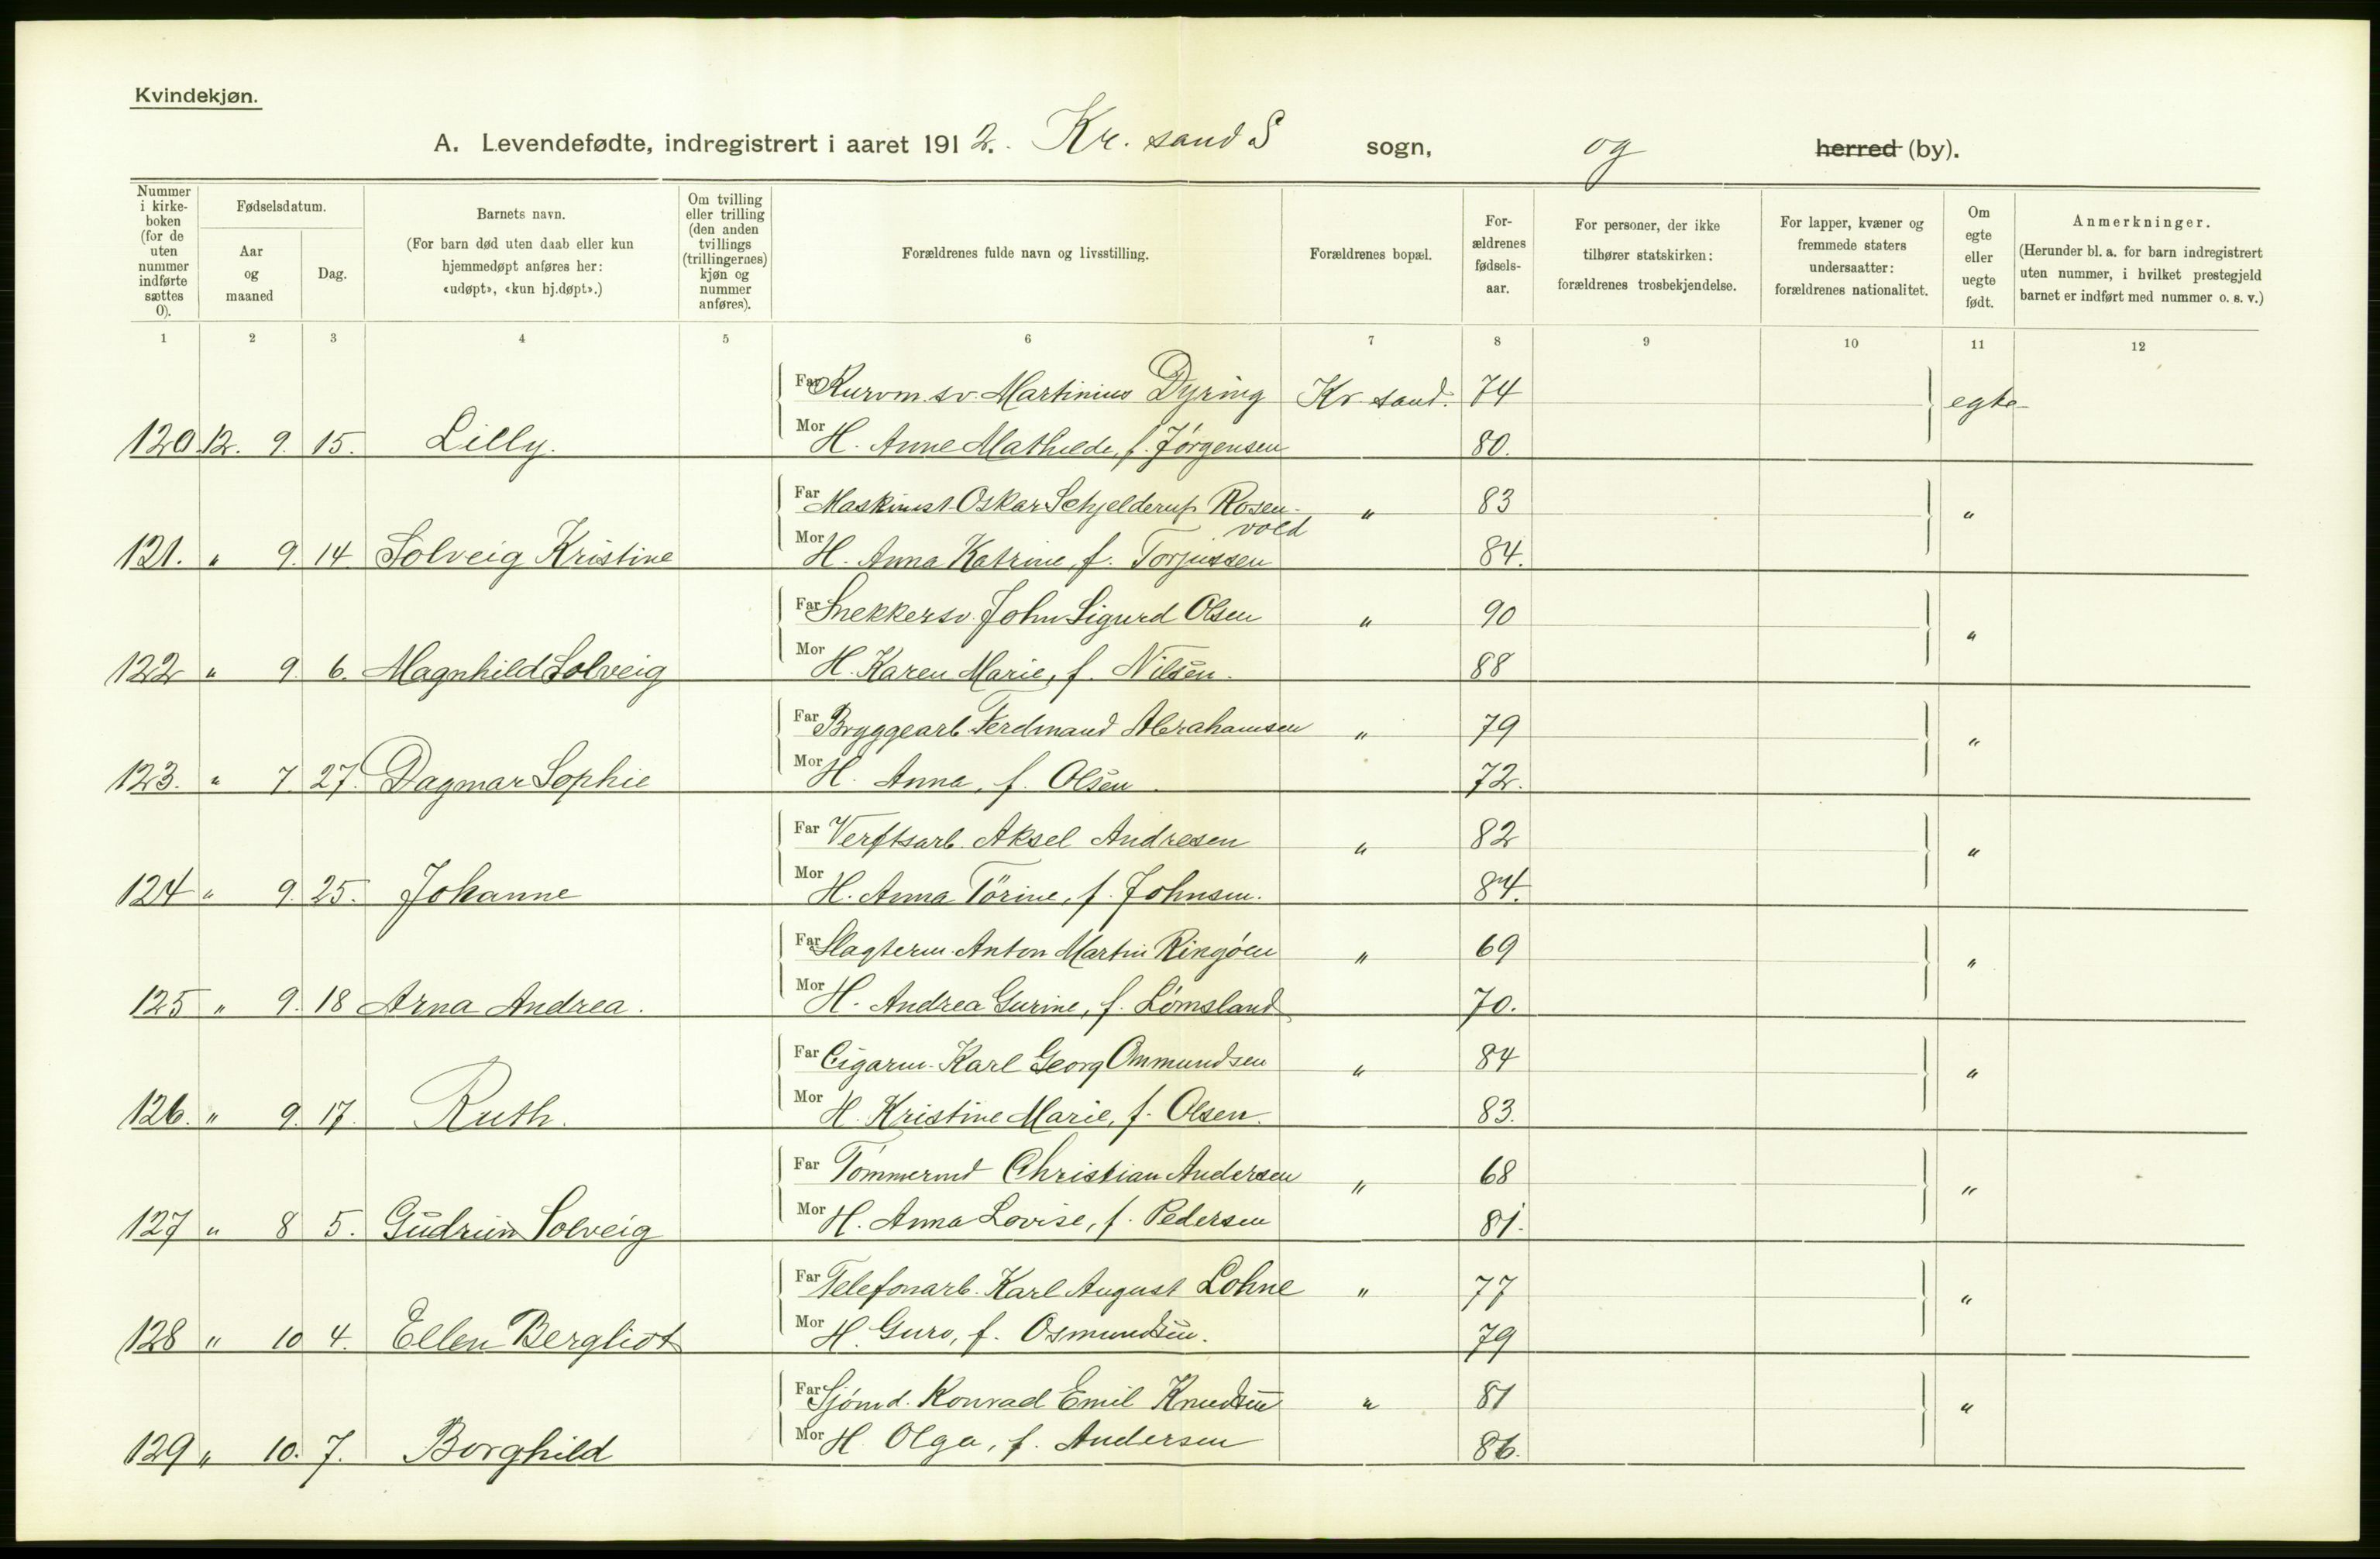 Kvindekjøn.
A. Levendefødte, indregistrert i aaret 1912. Kr. sand S sogn, og herred (by).
Nummer i kirke-boken (for de uten nummer indførte sættes 0).
Fødselsdatum.
Aar og maaned
Dag.
Barnets navn.
(For barn død uten daab eller kun hjemmedøpt anføres her: «udøpt», «kun hj.døpt».)
Om tvilling eller trilling (den anden tvillings (trillingernes) kjøn og nummer anføres).
Forældrenes fulde navn og livsstilling.
Forældrenes bopæl.
For-ældrenes fødsels-aar.
For personer, der ikke tilhører statskirken: forældrenes trosbekjendelse.
For lapper, kvæner og fremmede staters undersaatter: forældrenes nationalitet.
Om egte eller uegte født.
Anmerkninger.
(Herunder bl. a. for barn indregistrert uten nummer, i hvilket prestegjeld barnet er indført med nummer o. s. v.)
1 2 3 4 5 6 7 8 9 10 11 12
Far Kurvm.sv. Martinius Dyring Kr. sand. 74 egte
120 12. 9. 15. Lilly. Mor H. Anne Mathilde, f. Jørgensen 80.
Far Maskinist Oskar Schjelderup Rosen- " 83 "
vold
121. " 9. 14 Solveig Kristine Mor H. Anna Katrine, f. Torjussen 84.
Far Snekkersv. John Sigurd Olsen " 90 "
122 " 9. 6. Magnhild Solveig Mor H. Karen Marie, f. Nilsen. 88
Far Bryggearb. Ferdinand Abrahamsen " 79 "
123. " 7. 27. Dagmar Sophie Mor H. Anna, f. Olsen. 72.
Far Verftsarb. Aksel Andresen " 82 "
124 " 9. 25. Johanne Mor H. Anna Törine, f. Johnsen. 84.
Far Slagterm. Anton Martin Ringöen " 69 "
125 " 9. 18 Arna Andrea. Mor H. Andrea Gurine, f. Lømsland 70.
Far Cigarm. Karl Georg Ommundsen " 84 "
126. " 9. 17. Ruth. Mor H. Kristine Marie, f. Olsen. 83.
Far Tømmermd Christian Andersen " 68 "
127 " 8 5. Gudrun Solveig Mor H. Anna Lovise, f. Pedersen 81.
Far Telefonarb. Karl August Lohne " 77 "
128 " 10 4. Ellen Bergliot Mor H. Guro, f. Osmundsen. 79
Far Sjømd. Konrad Emil Knudsen " 81 "
129 " 10. 7. Borghild Mor H. Olga, f. Andersen 86.